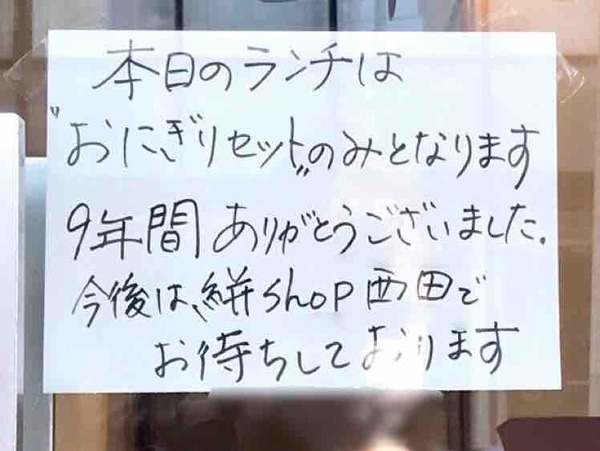 本日のランチは
"おにぎりセット"のみとなります
9年間ありがとうございました.
今後は、絣shop西田で
お待ちしております